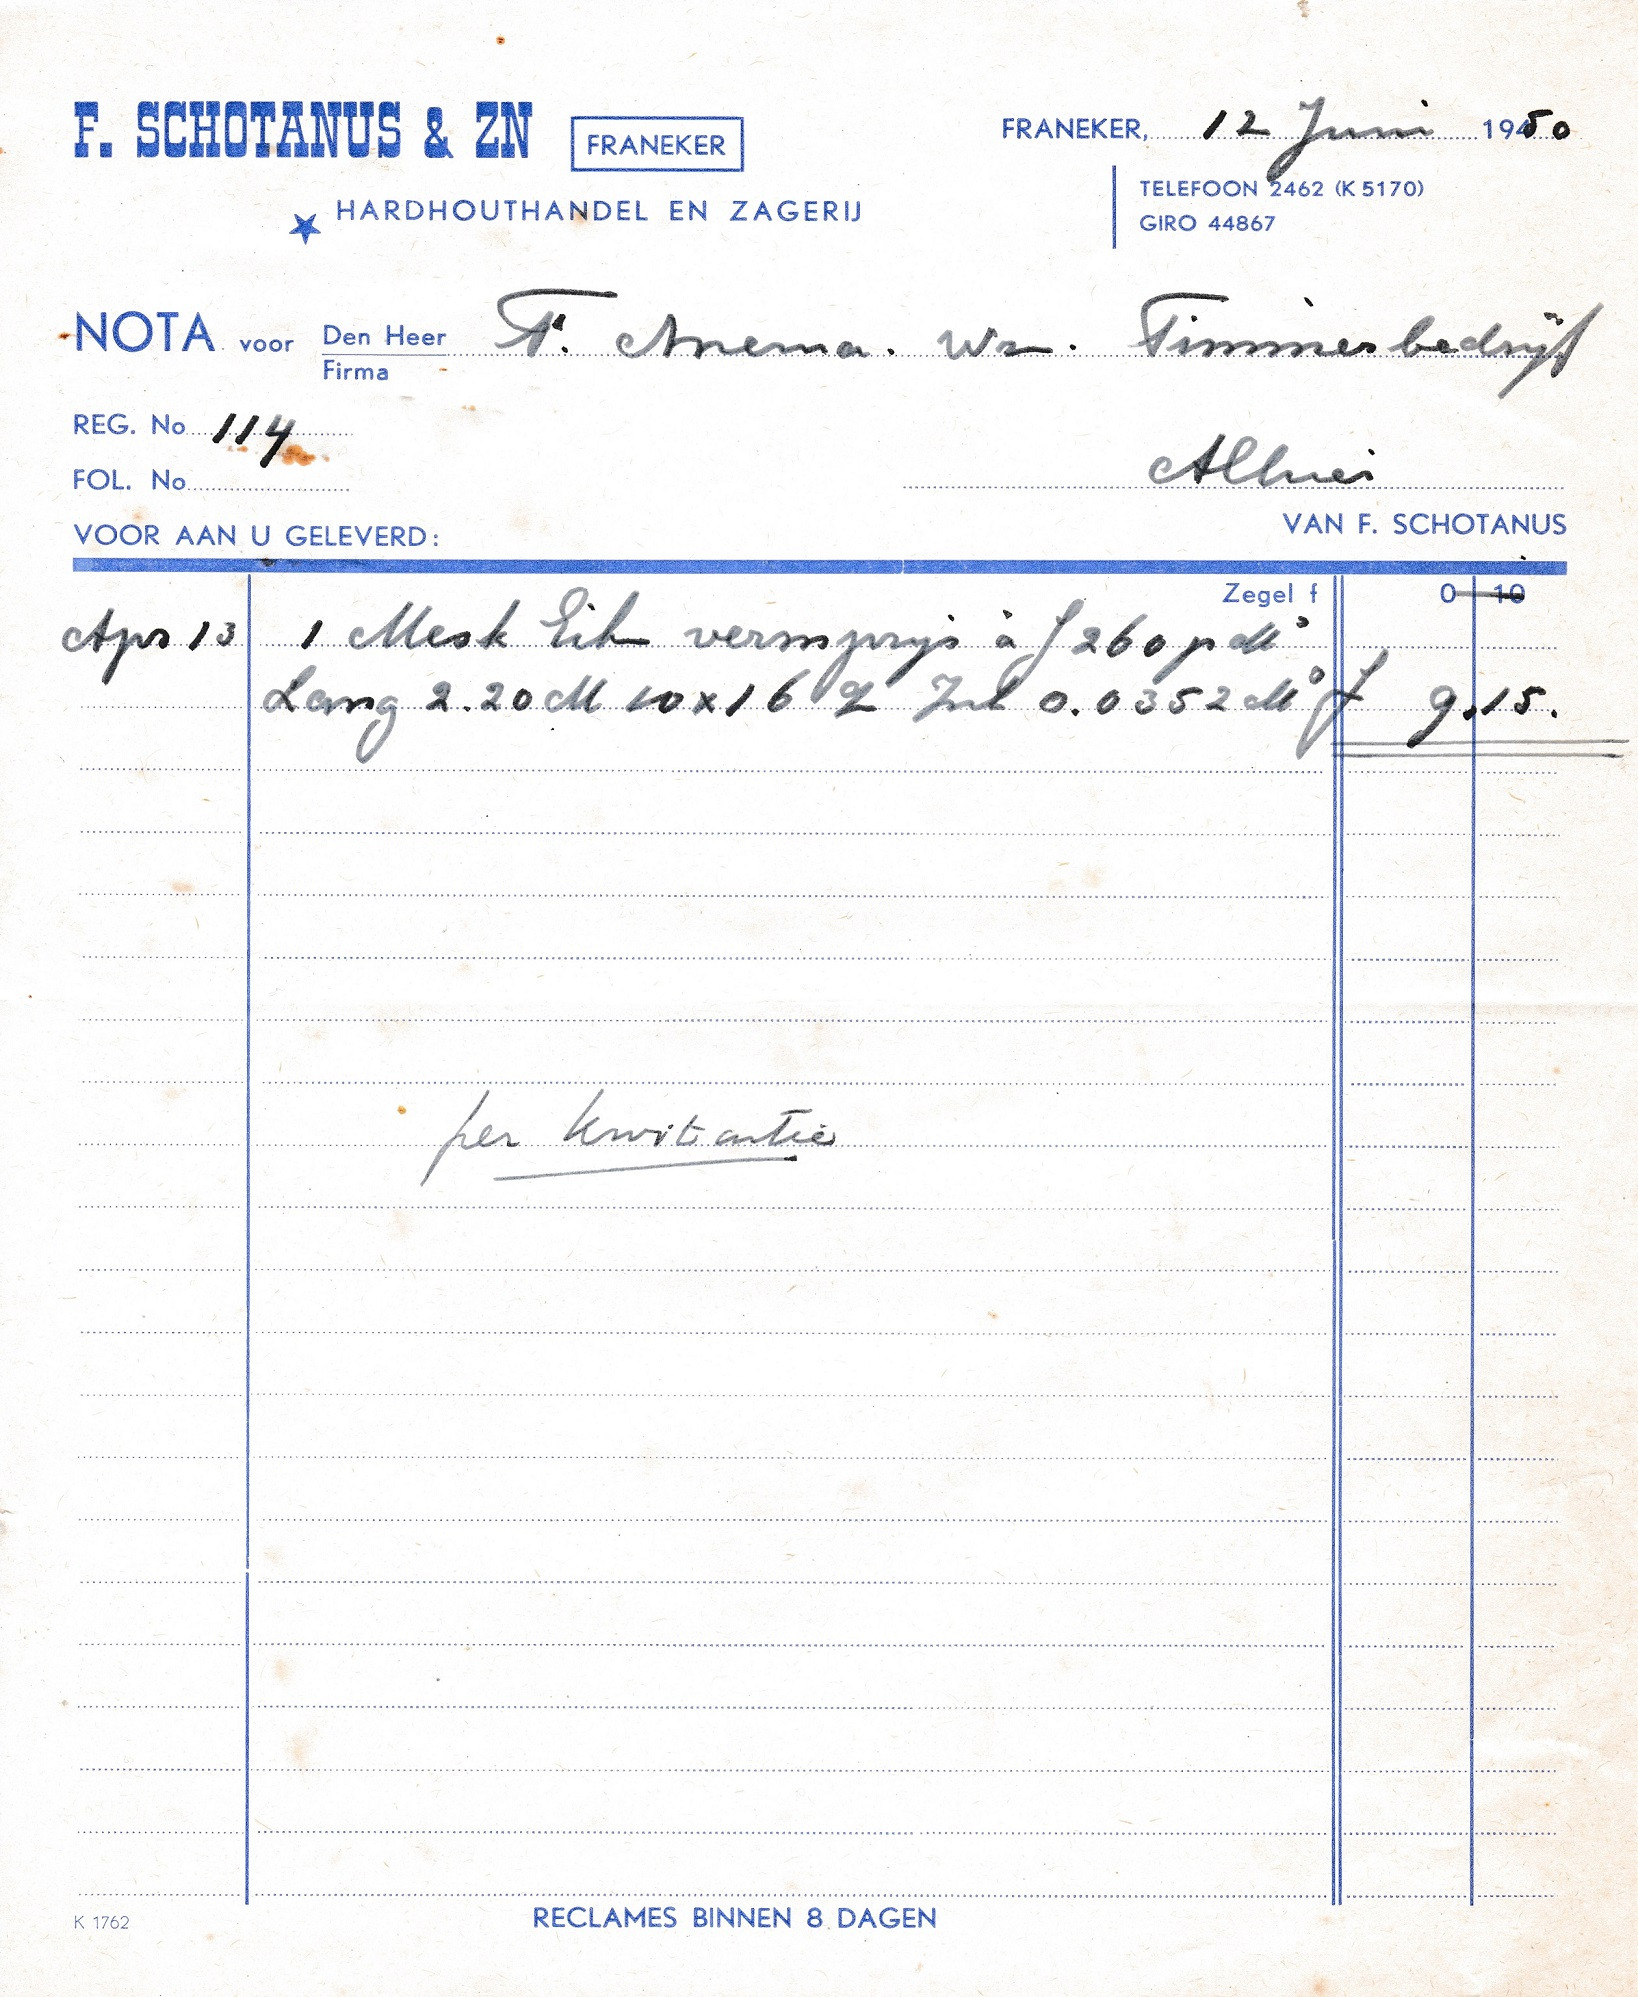 F. SCHOTANUS & ZN FRANEKER
HARDHOUTHANDEL EN ZAGERIJ
FRANEKER, 12 Juni 1950
TELEFOON 2462 (K 5170)
GIRO 44867
NOTA voor Den Heer F. Anema. Wz. Timmerbedrijf
Firma
REG. No 114
Alhier
FOL. No
VOOR AAN U GELEVERD:
VAN F. SCHOTANUS
Zegel f 0 10
Apr 13 1 Mesk Eik à f 260 p M³
Lang 2.20 M 10 x 16 Inh 0.0352 M³ f 9.15.
per kwitantie
K 1762
RECLAMES BINNEN 8 DAGEN